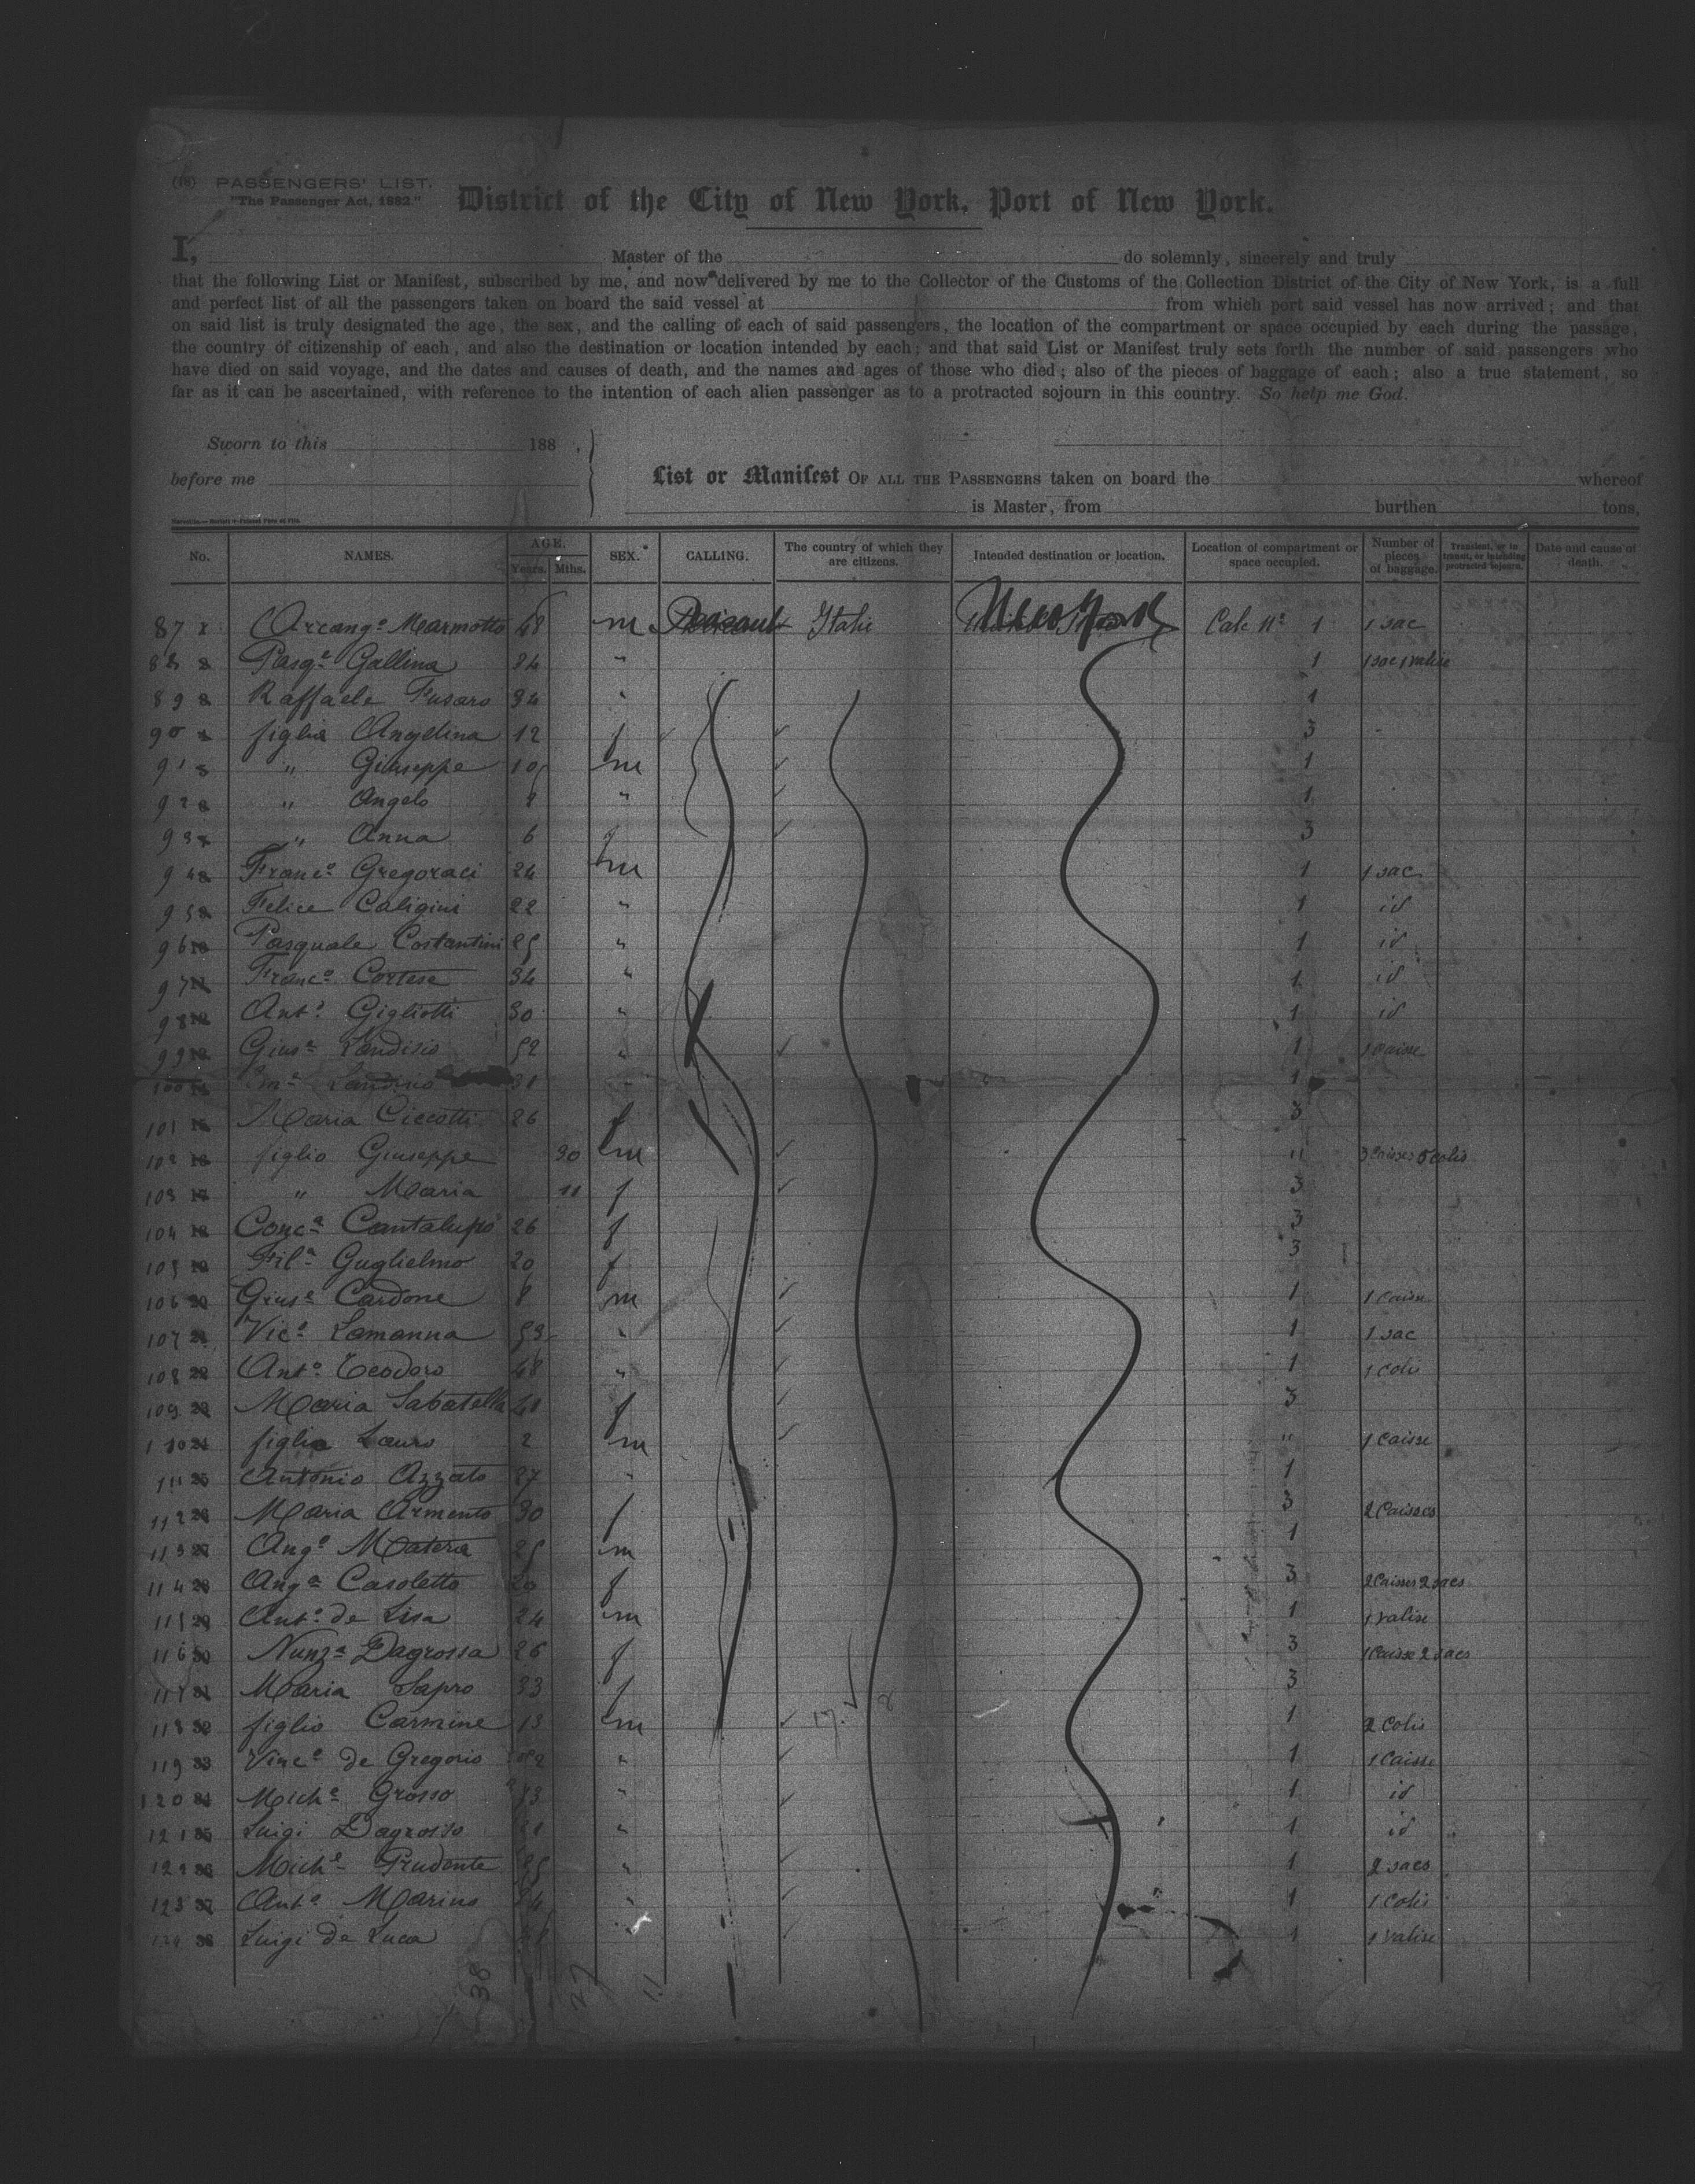 (16) PASSENGERS' LIST.
"The Passenger Act, 1882."
District of the City of New York, Port of New York.
I, Master of the do solemnly, sincerely and truly
that the following List or Manifest, subscribed by me, and now delivered by me to the Collector of the Customs of the Collection District of the City of New York, is a full
and perfect list of all the passengers taken on board the said vessel at from which port said vessel has now arrived; and that
on said list is truly designated the age, the sex, and the calling of each of said passengers, the location of the compartment or space occupied by each during the passage,
the country of citizenship of each, and also the destination or location intended by each; and that said List or Manifest truly sets forth the number of said passengers who
have died on said voyage, and the dates and causes of death, and the names and ages of those who died; also of the pieces of baggage of each; also a true statement, so
far as it can be ascertained, with reference to the intention of each alien passenger as to a protracted sojourn in this country. So help me God.
Sworn to this 188 .
before me
List or Manifest OF ALL THE PASSENGERS taken on board the whereof
is Master, from burthen tons,
No. NAMES. AGE. Years. Mths. SEX. CALLING. The country of which they are citizens. Intended destination or location. Location of compartment or space occupied. Number of pieces of baggage. Transient, or in transit, or intending protracted sojourn. Date and cause of death.
87 Arcangº Marmotto 48 m Italie New York Cale Nº 1 1 sac
88 Pasqe Gallina 34 " 1 1 sac 1 valise
89 Raffaele Fusaro 34 " 1
90 figlia Angelina 12 f 3
91 " Giuseppe 10 m 1
92 " Angelo " 1
93 " Anna 6 f 3
94 Francº Gregoraci 24 m 1 1 sac
95 Felice Caligini 22 " 1 id
96 Pasquale Costantini 25 " 1 id
97 Francº Cortese 34 " 1 id
98 Antº Gigliotti 30 " 1 id
99 Giuse Landisio 52 " 1 1 caisse
100 Landisio 31 " 1
101 Maria Ciccotti 26 3
102 figlio Giuseppe 30 m " 3 caisses 5 colis
103 " Maria 11 f 3
104 Conca Cantalupo 26 f 3
105 Fila Guglielmo 20 f 3
106 Giuse Cardone 8 m 1 1 caisse
107 Vice Lamanna 53 " 1 1 sac
108 Antº Teodoro 48 " 1 1 colis
109 Maria Sabatella 41 f 3
110 figlio Lauro 2 m " 1 caisse
111 Antonio Azzato 27 " 1
112 Maria Armento 30 f 3 2 Caisses
113 Angº Matera 25 m 1
114 Anga Casoletto f 3 2 Caisses 2 sacs
115 Antº de Lisa 24 m 1 1 valise
116 Nunza Dagrossa 26 f 3 1 Caisse 2 sacs
117 Maria Sapro 33 f 3
118 figlio Carmine 13 m 1 2 Colis
119 Vince de Gregorio " 1 1 Caisse
120 Miche Grosso " 1 id
121 Luigi Dagrosso " 1 id
122 Miche Prudente " 1 2 sacs
123 Antº Marino " 1 1 Colis
124 Luigi de Luca " 1 1 valise
38 27 11